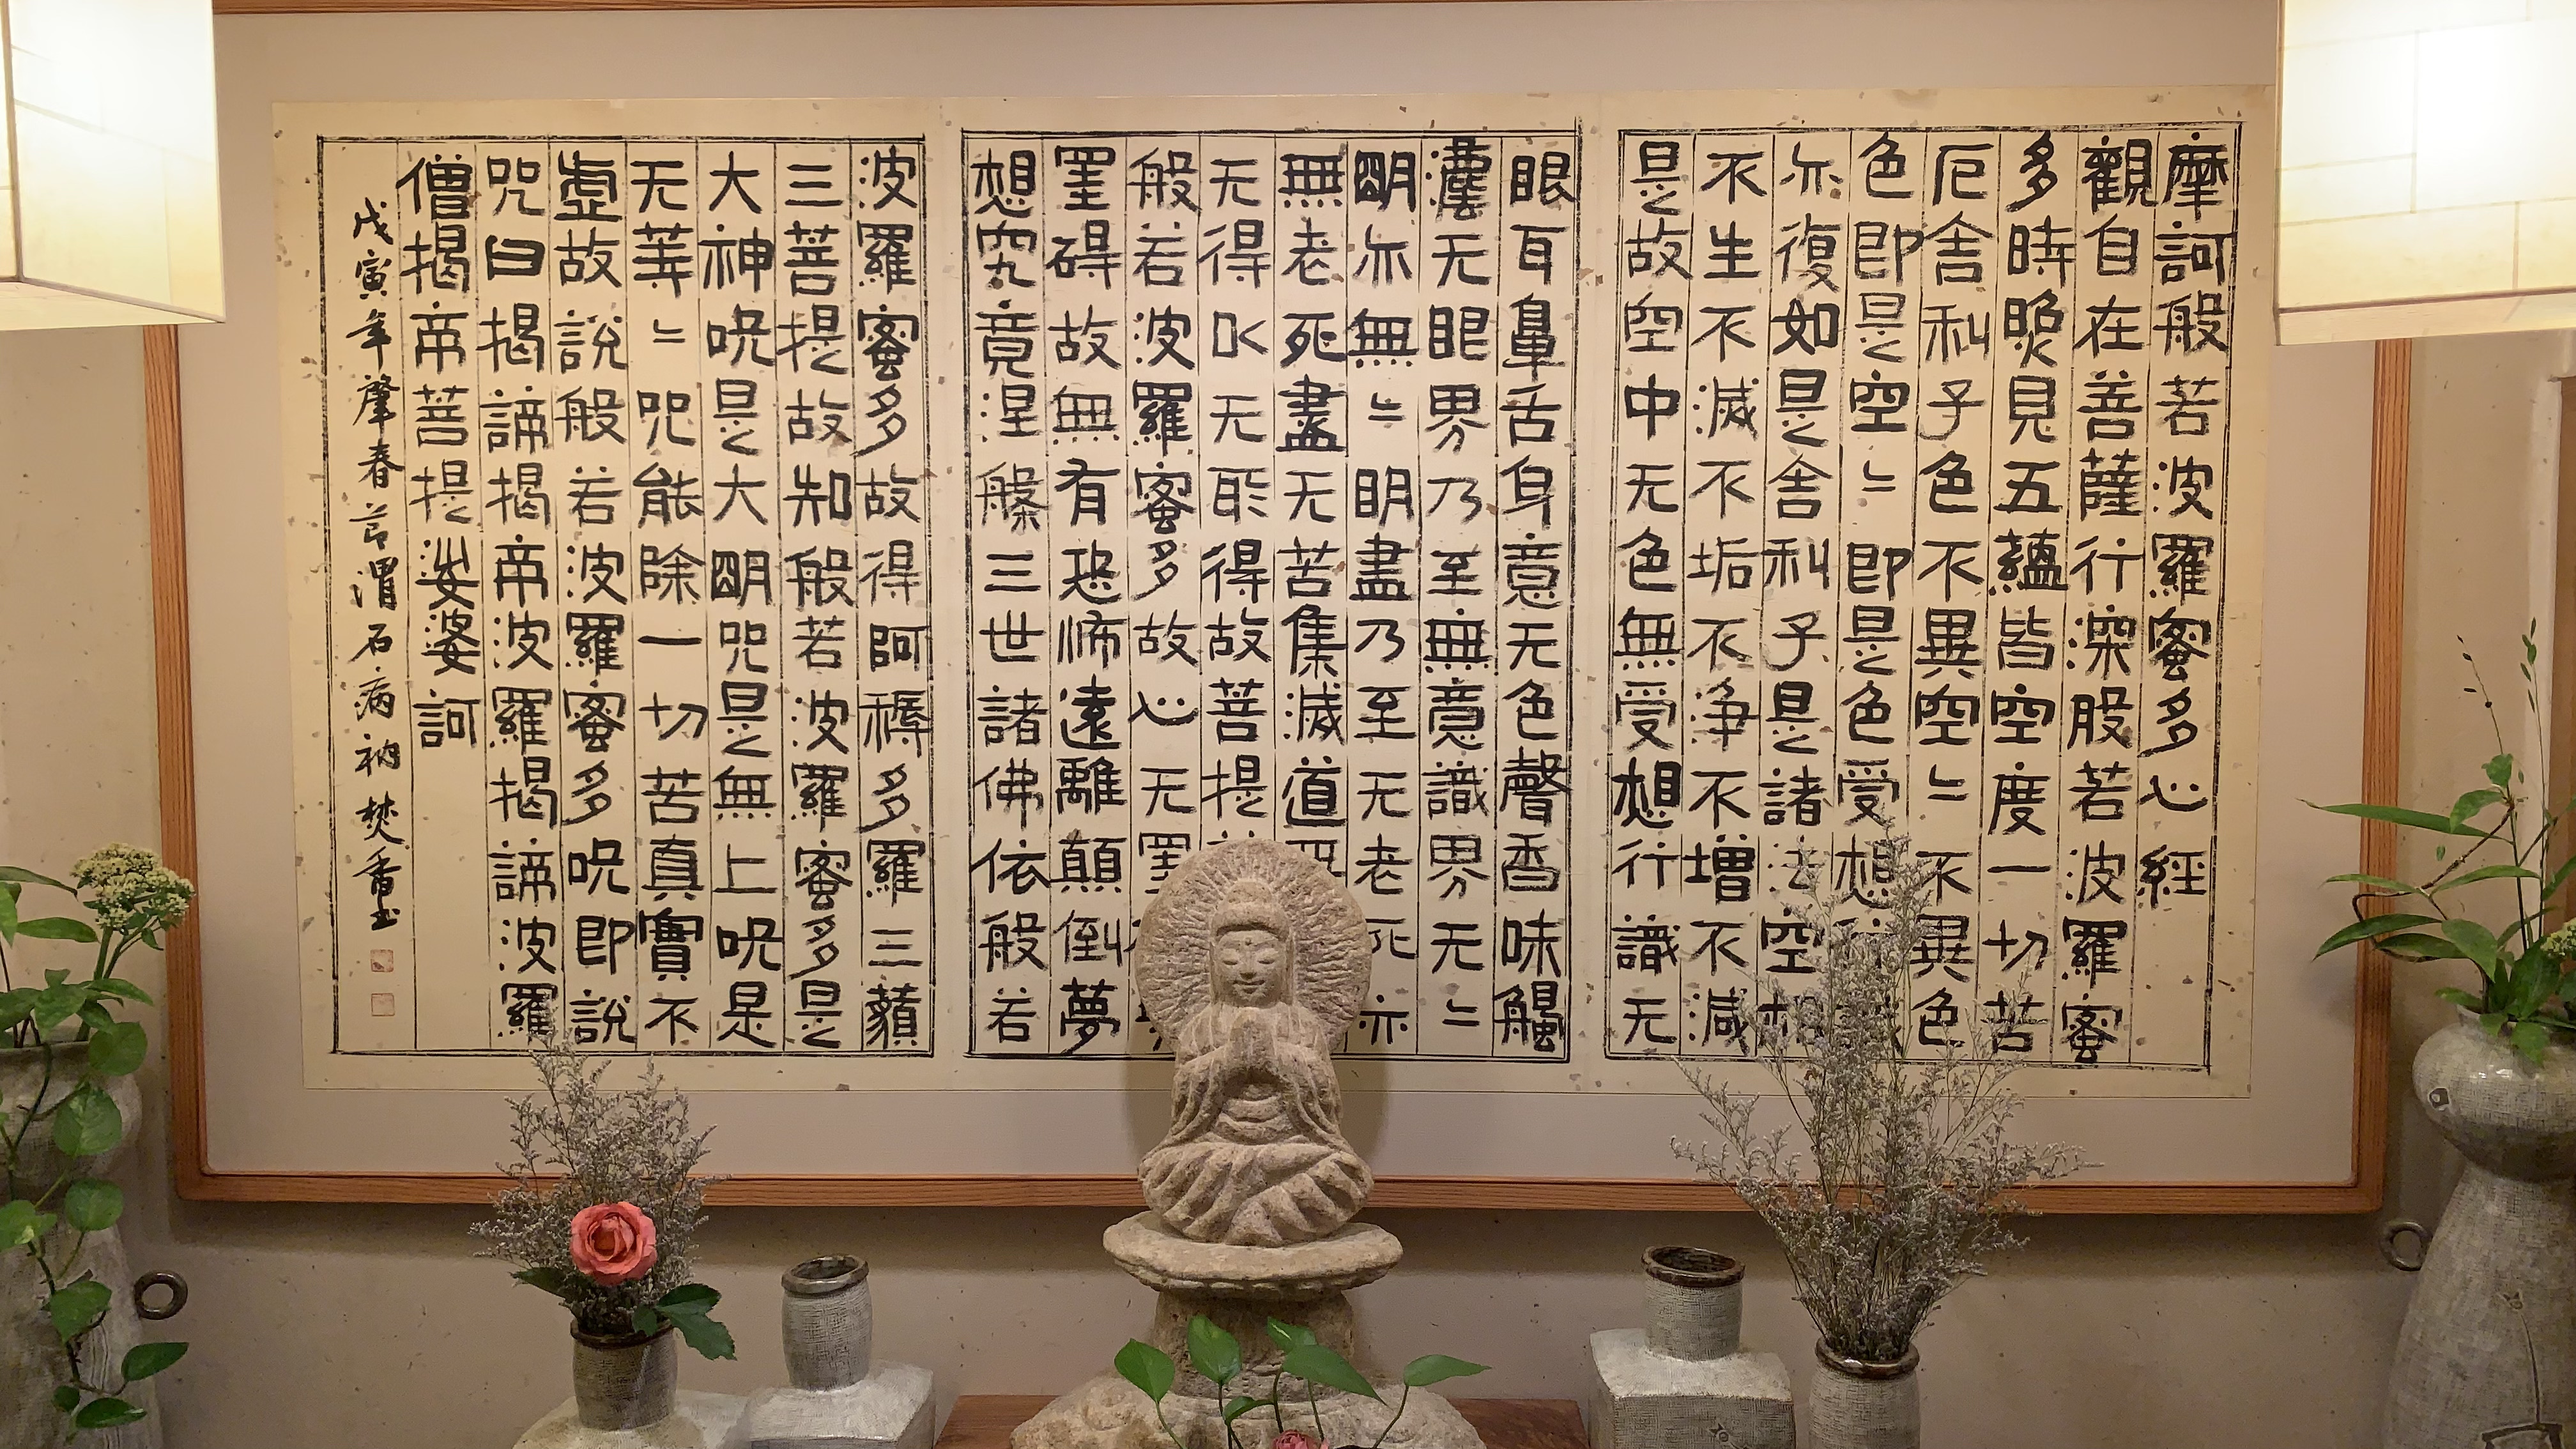 摩訶般若波羅蜜多心經
觀自在菩薩行深般若波羅蜜
多時照見五蘊皆空度一切苦
厄舍利子色不異空〻不異色
色即是空〻即是色受想行識
亦復如是舍利子是諸法空相
不生不滅不垢不淨不增不減
是故空中无色無受想行識无
眼耳鼻舌身意无色聲香味觸
灋无眼界乃至無意識界无〻
明亦無〻明盡乃至无老死亦
無老死盡无苦集滅道
无得以无所得故菩提
般若波羅蜜多故心无罣
罣碍故無有恐怖遠離顛倒夢
想究竟涅槃三世諸佛依般若
波羅蜜多故得阿耨多羅三藐
三菩提故知般若波羅蜜多是
大神呪是大明咒是無上呪是
无等〻咒能除一切苦真實不
虛故說般若波羅蜜多呪即說
咒曰揭諦揭帝波羅揭諦波羅
僧揭帝菩提娑婆訶
戊寅年肇春節渭石病衲焚香書